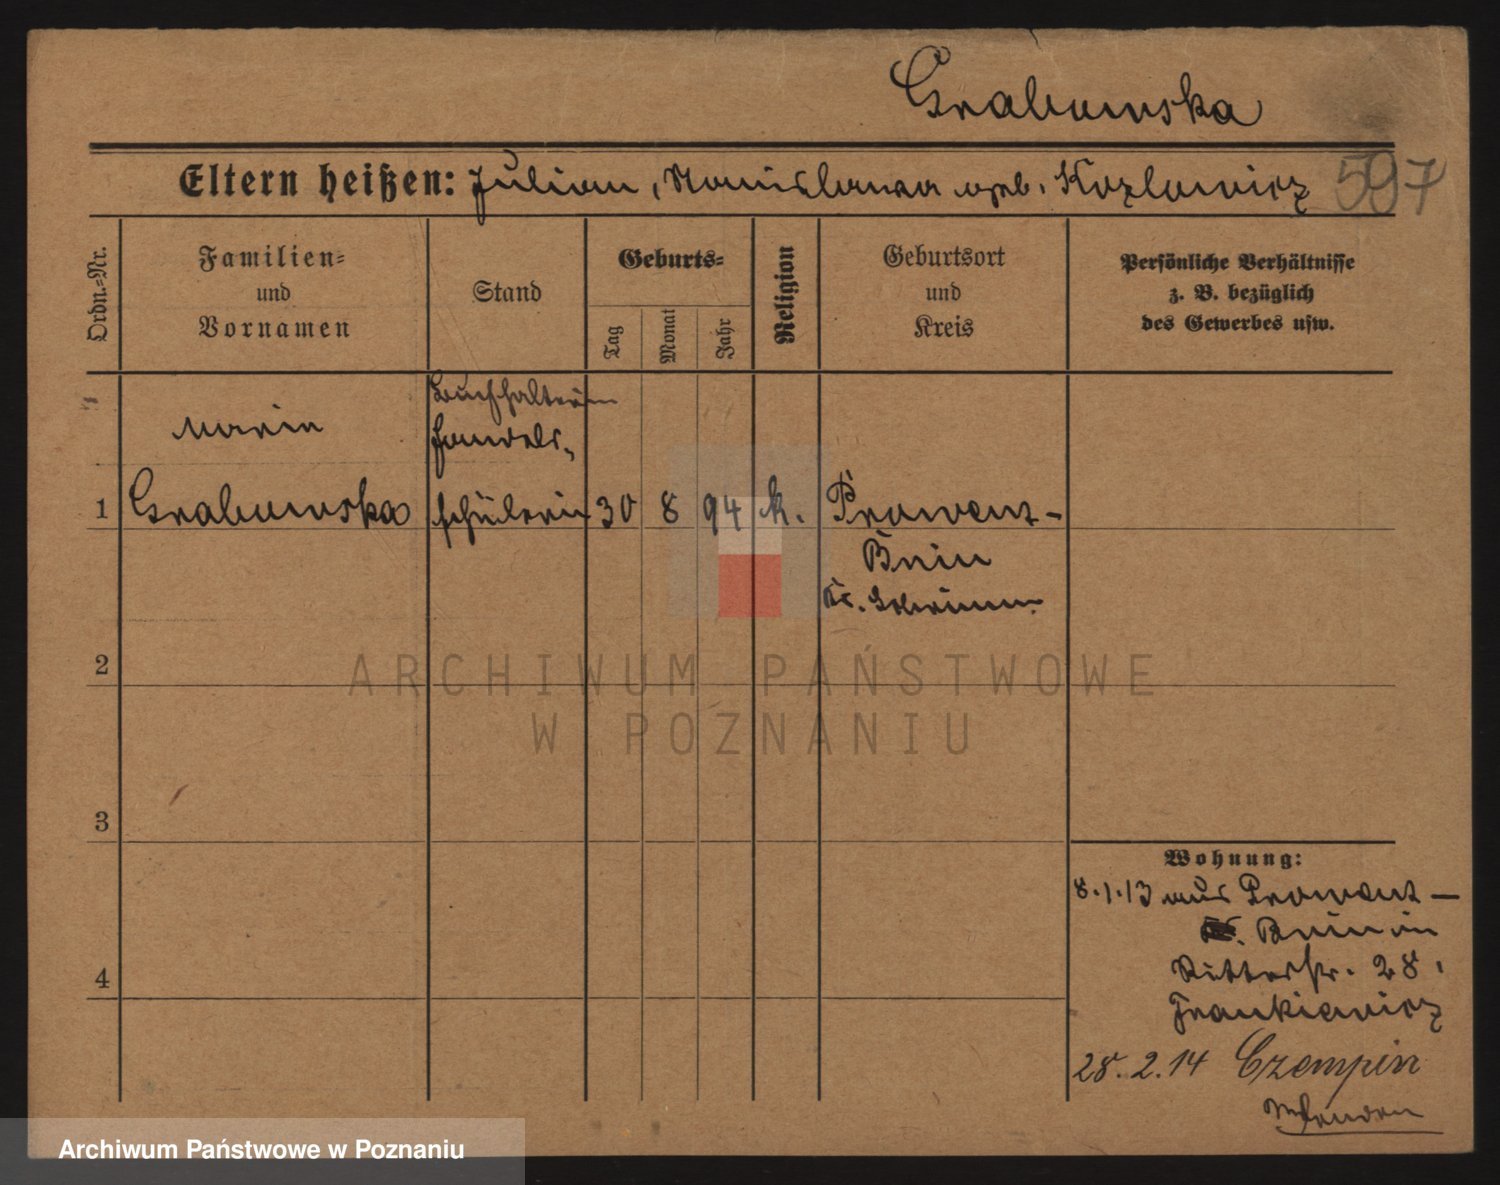 Grabowska
Eltern heißen: Julian, Stanislawa geb. Kozlowicz 597
Ordn.-Nr.
Familien-
und
Vornamen
Stand
Geburts-
Tag
Monat
Jahr
Religion
Geburtsort
und
Kreis
Persönliche Verhältnisse
z. B. bezüglich
des Gewerbes usw.
Buchhalterin
Maria
Handels-
1 Grabowska schülerin 30 8 94 k. Prowent-
Bnin
Kr. Schrimm
2
3
4
Wohnung:
8.1.13 aus Prowent-
Bnin in
Ritterstr. 28,
Frankiewicz
28.2.14 Czempin
ARCHIWUM PAŃSTWOWE
W POZNANIU
Archiwum Państwowe w Poznaniu